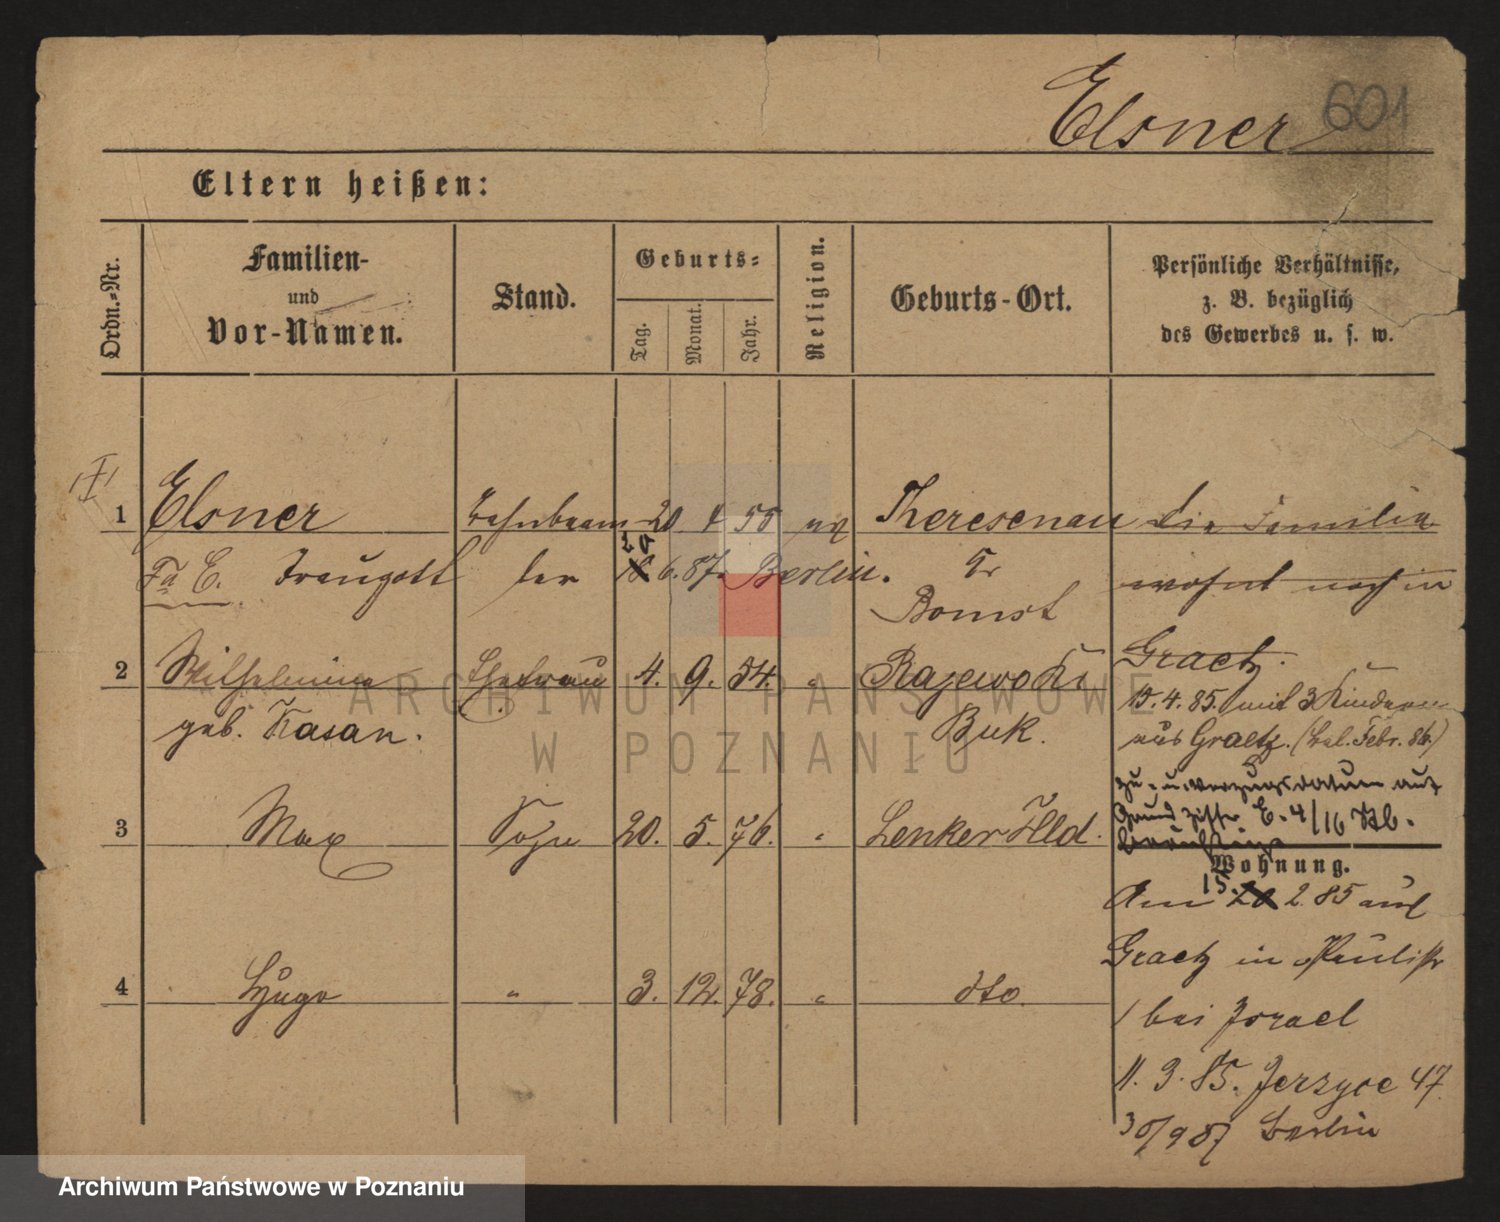 601
Elsner
Eltern heißen:
Ordn.-Nr.
Familien-
und
Vor-Namen.
Stand.
Geburts-
Tag.
Monat.
Jahr.
Religion.
Geburts-Ort.
Persönliche Verhältnisse,
z. B. bezüglich
des Gewerbes u. s. w.
1 Elsner 20 4 55 Theresenau die Familie
E. Traugott 6. 87. Berlin. Kr wohnt noch in
Bomst
2 Wilhelmine Ehefrau 4. 9. 54. " Rajewo Kr Graetz.
15. 4. 85. mit 3 Kindern
geb. Kasan. Buk. aus Graetz. (bel. Febr. 86)
Zu- u. Verzugsdatum auf
Grund Ziffer E. 4/16
3 Max Sohn 20. 5. 76. " Lenker Hld.
Wohnung.
Am 15. 2. 85 aus
Graetz in Paulistr
4 Hugo " 3. 12. 78. " dto.
bei Israel
11. 3. 85. Jerzyce 47
30/9 87 Berlin
ARCHIWUM PAŃSTWOWE
W POZNANIU
Archiwum Państwowe w Poznaniu